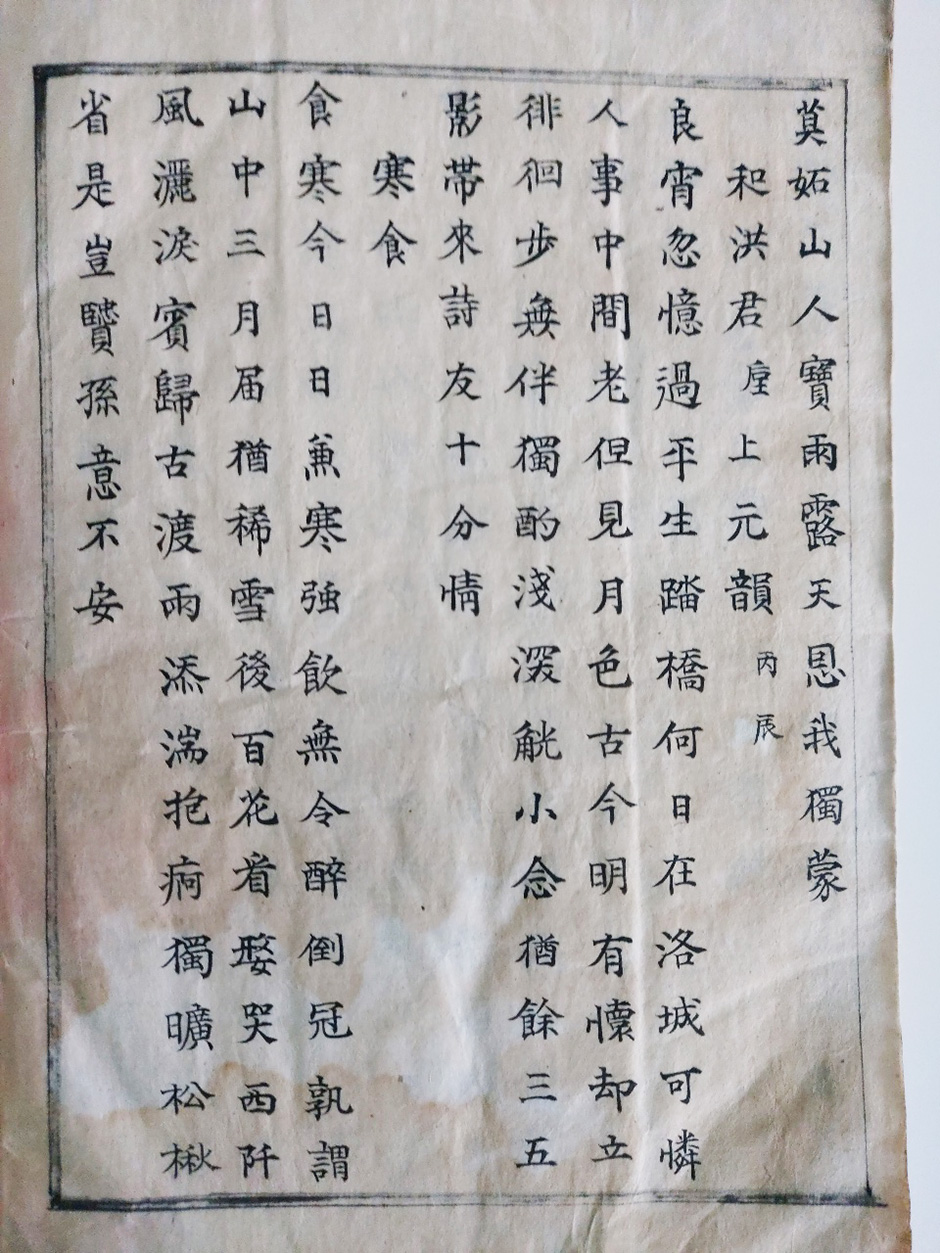 莫妬山人寶雨露天恩我獨蒙
和洪君㕓上元韻丙辰
良宵忽憶過平生踏橋何日在洛城可憐
人事中間老但見月色古今明有懷却立
徘徊步無伴獨酌淺深觥小念猶餘三五
影帶來詩友十分情
寒食
食寒今日日兼寒強飲無令醉倒冠孰謂
山中三月届猶稀雪後百花看嫛哭西阡
風灑淚賓歸古渡雨添湍抱痾獨曠松楸
省是豈賢孫意不安